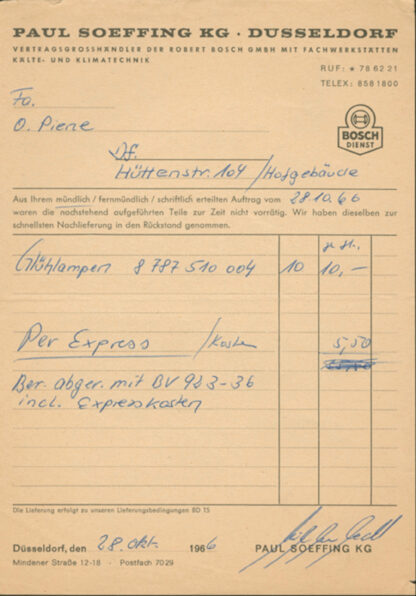 PAUL SOEFFING KG · DUSSELDORF
VERTRAGSGROSSHÄNDLER DER ROBERT BOSCH GMBH MIT FACHWERKSTÄTTEN
KÄLTE- UND KLIMATECHNIK
RUF: ★ 78 62 21
TELEX: 8581800
Fa.
O. Piene
BOSCH
DIENST
Df.
Hüttenstr. 104 / Hofgebäude
Aus Ihrem mündlich / fernmündlich / schriftlich erteilten Auftrag vom 28.10.66
waren die nachstehend aufgeführten Teile zur Zeit nicht vorrätig. Wir haben dieselben zur
schnellsten Nachlieferung in den Rückstand genommen.
je St.
Glühlampen 8 787 510 004 10 10,-
Per Express /Kosten 5,50
Ber. abger. mit BV 923-36
incl. Expresskosten
Die Lieferung erfolgt zu unseren Lieferungsbedingungen BD 15
Düsseldorf, den 28. Okt. 1966 PAUL SOEFFING KG
Mindener Straße 12-18 · Postfach 7029